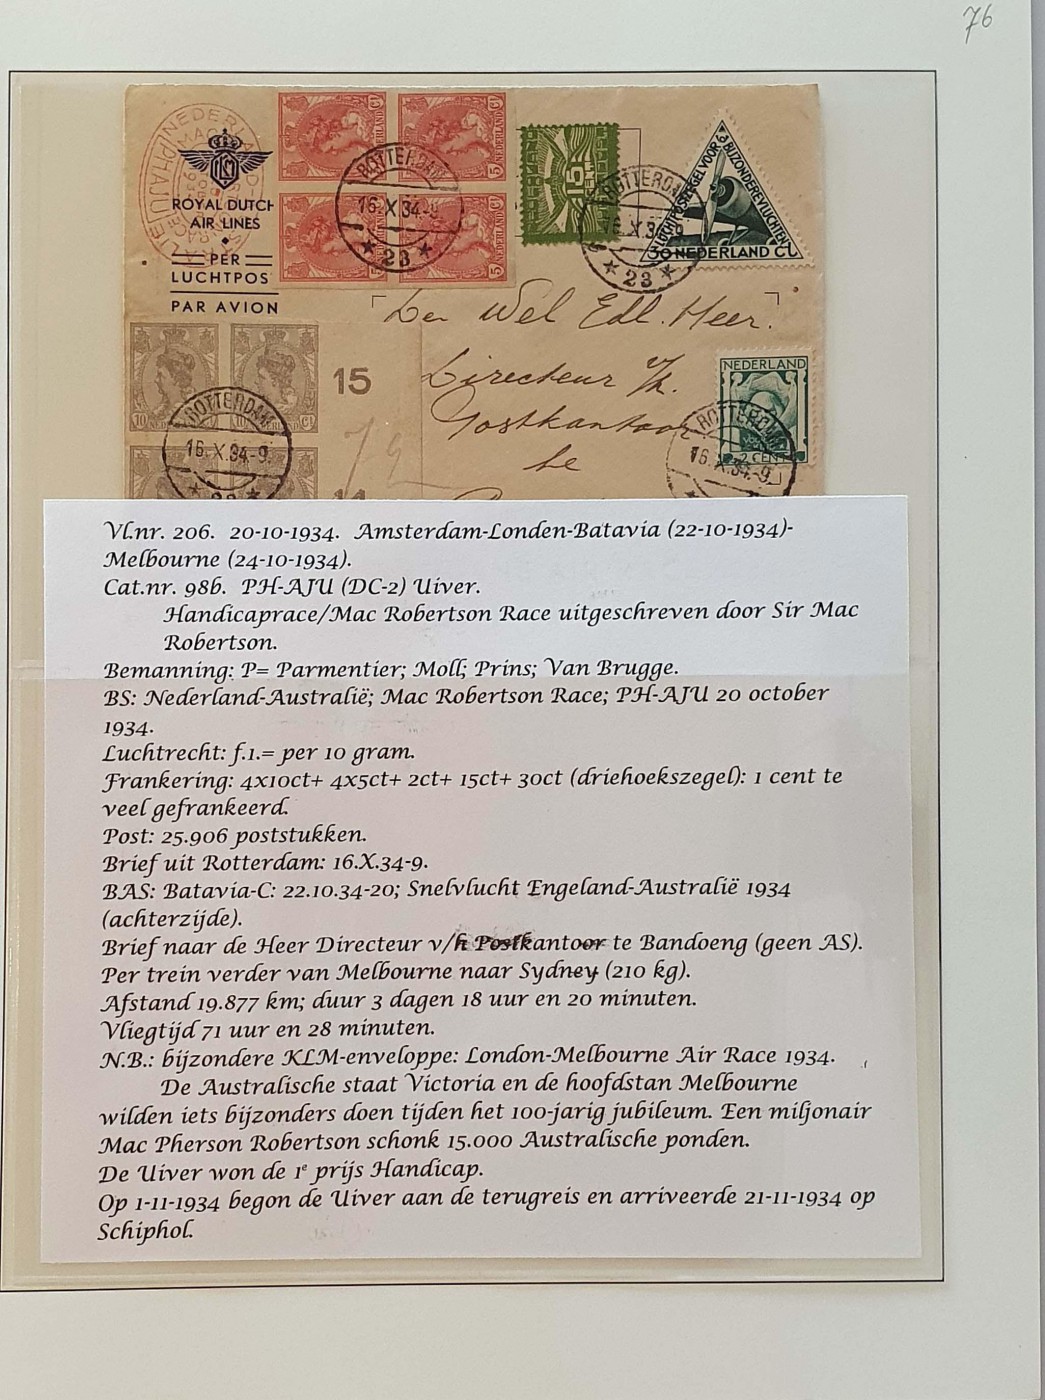 76
ROYAL DUTCH
AIR LINES
PER
LUCHTPOST
PAR AVION
NEDERLAND 5 CT
NEDERLAND 5 CT
ROTTERDAM
16.X.34.-9
23
15 CENT
ROTTERDAM
16.X.34.-9
23
LUCHTPOSTZEGEL VOOR BIJZONDERE VLUCHTEN
30 NEDERLAND CT
Den Wel Edl. Heer.
Directeur v/h.
Postkantoor
te
15
72
10 NEDERLAND CT
ROTTERDAM
16.X.34.-9.
23
NEDERLAND
2 CENT
ROTTERDAM
16.X.34.-9.
Vl.nr. 206. 20-10-1934. Amsterdam-Londen-Batavia (22-10-1934)-
Melbourne (24-10-1934).
Cat.nr. 98b. PH-AJU (DC-2) Uiver.
Handicaprace/Mac Robertson Race uitgeschreven door Sir Mac
Robertson.
Bemanning: P= Parmentier; Moll; Prins; Van Brugge.
BS: Nederland-Australië; Mac Robertson Race; PH-AJU 20 october
1934.
Luchtrecht: f.1.= per 10 gram.
Frankering: 4x10ct+ 4x5ct+ 2ct+ 15ct+ 30ct (driehoekszegel): 1 cent te
veel gefrankeerd.
Post: 25.906 poststukken.
Brief uit Rotterdam: 16.X.34-9.
BAS: Batavia-C: 22.10.34-20; Snelvlucht Engeland-Australië 1934
(achterzijde).
Brief naar de Heer Directeur v/h Postkantoor te Bandoeng (geen AS).
Per trein verder van Melbourne naar Sydney (210 kg).
Afstand 19.877 km; duur 3 dagen 18 uur en 20 minuten.
Vliegtijd 71 uur en 28 minuten.
N.B.: bijzondere KLM-enveloppe: London-Melbourne Air Race 1934.
De Australische staat Victoria en de hoofdstan Melbourne
wilden iets bijzonders doen tijden het 100-jarig jubileum. Een miljonair
Mac Pherson Robertson schonk 15.000 Australische ponden.
De Uiver won de 1e prijs Handicap.
Op 1-11-1934 begon de Uiver aan de terugreis en arriveerde 21-11-1934 op
Schiphol.